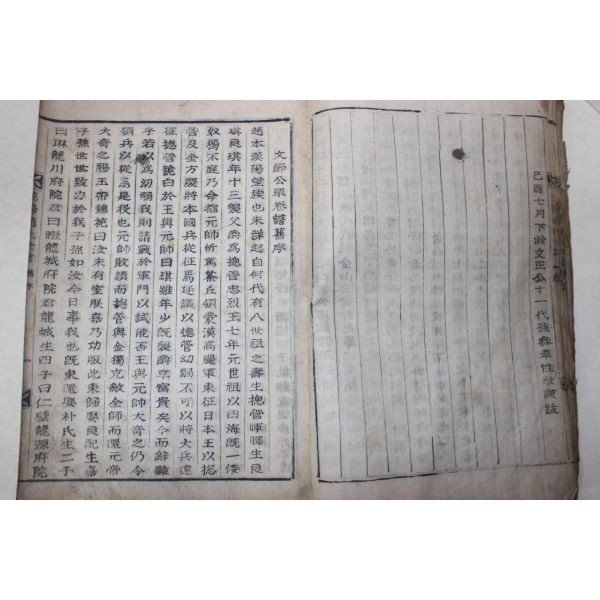 己酉七月下澣文正公十一代孫奉性敬跋
文節公單卷譜舊序
趙本漢陽望族也未詳起自何代有八世祖之壽生摠管暉暉生良
琪良琪年十三襲父爵爲摠管忠烈王七年元世祖以四海旣一倭
奴獨不庭乃命都元帥忻篤茶丘領蒙漢高麗軍東征日本王以摠
管及金方慶將本國兵從征焉廷議以摠管幼弱不可以將大兵遠
征摠管跪白於王與元帥曰琪雖年少旣辭富貴矣今而辭難
乎若以爲幼弱我則請戰於軍門以試能否王與元帥大奇之仍令
領兵以從焉是役也元帥敗績而摠管與金獨克敵全師而還元帝
大奇之賜玉帶錦袍曰汝未有室朕嘉乃功服此東歸娶良配生嘉
子孫世世致力於我子孫如汝今日事我也旣東還娶朴氏生二子
曰琳龍川府院君曰暾龍城府院君龍城生四子曰仁璧龍源府院